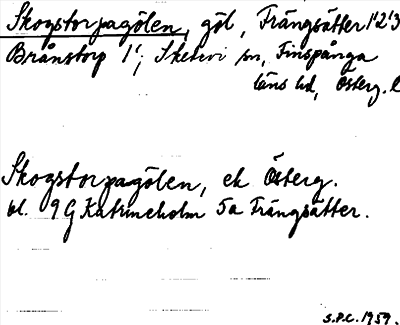 Skogstorpagölen, göl, Frängsätter 1'2'3
Brånstorp 1'; Skedevi sn, Finspånga
läns hd, Österg. l
Skogstorpagölen, ek Österg.
bl. 9G Katrineholm 5a Frängsätter.
S.P.C. 1959.